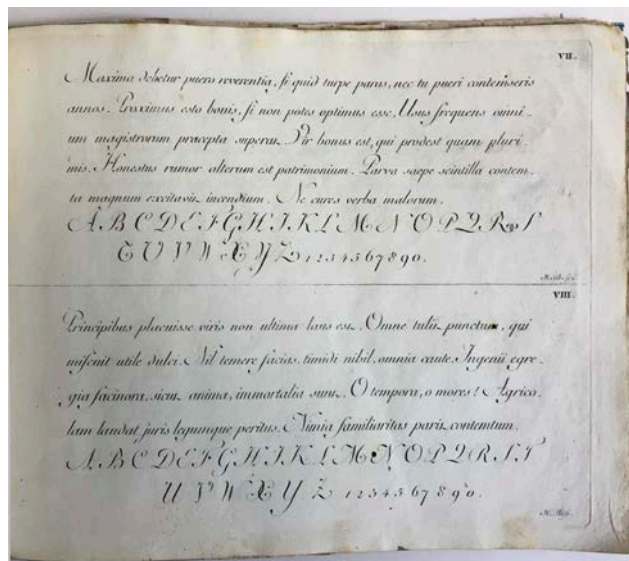 VII.
Maxima debetur puero reverentia, si quid turpe paras, nec tu pueri contemseris
annos. Proximus esto bonis, si non potes optimus esse. Usus frequens omni-
um magistrorum praecepta superat. Vir bonus est, qui prodest quam pluri-
mis. Honestus rumor alterum est patrimonium. Parva saepe scintilla contem-
ta magnum excitavit incendium. Ne cures verba malorum.
A B C D E F G H I K L M N O P Q R S
T U V W X Y Z 1 2 3 4 5 6 7 8 9 0.
VIII.
Principibus placuisse viris non ultima laus est. Omne tulit punctum, qui
miscuit utile dulci. Nil temere facias, timidi nihil, omnia caute. Ingenii egre-
gia facinora, sicut anima, immortalia sunt. O tempora, o mores! Agrico-
lam laudat juris legumque peritus. Nimia familiaritas parit contemtum.
A B C D E F G H I K L M N O P Q R S T
U V W X Y Z 1 2 3 4 5 6 7 8 9 0.